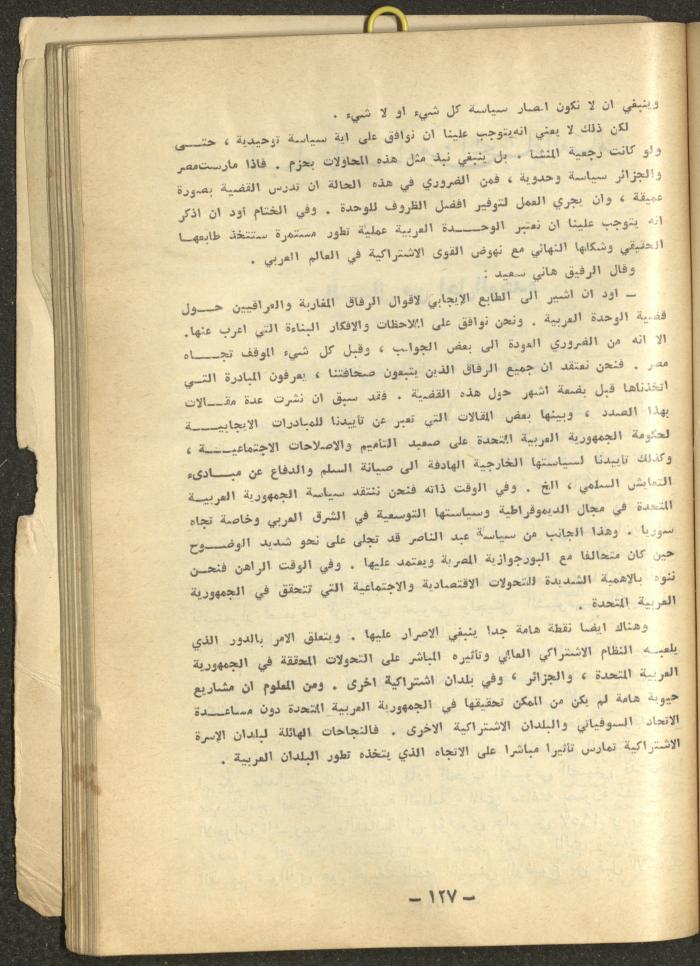 وينبغي ان لا نكون انصار سياسة كل شيء او لا شيء .
لكن ذلك لا يعني انه يتوجب علينا ان نوافق على اية سياسة توحيدية ، حتــى
ولو كانت رجعية المنشأ . بل ينبغي نبذ مثل هذه المحاولات بحزم . فاذا مارست مصر
والجزائر سياسة وحدوية ، فمن الضروري في هذه الحالة ان تدرس القضية بصورة
عميقة ، وان يجري العمل لتوفير افضل الظروف للوحدة . وفي الختام اود ان اذكر
انه يتوجب علينا ان نعتبر الوحـــدة العربية عملية تطور مستمرة ستتخذ طابعهــا
الحقيقي وشكلها النهائي مع نهوض القوى الاشتراكية في العالم العربي .
وقال الرفيق هاني سعيد :
ــ اود ان اشير الى الطابع الايجابي لاقوال الرفاق المغاربة والعراقيين حــول
قضية الوحدة العربية . ونحن نوافق على الملاحظات والافكار البناءة التي اعرب عنها.
الا انه من الضروري العودة الى بعض الجوانب ، وقبل كل شيء الموقف تجــاه
مصر . فنحن نعتقد ان جميع الرفاق الذين يتبعون صحافتنا ، يعرفون المبادرة التــي
اتخذناها قبل بضعة اشهر حول هذه القضية . فقد سبق ان نشرت عدة مقــالات
بهذا الصدد ، وبينها بعض المقالات التي تعبر عن تأييدنا للمبادرات الايجابيــــة
لحكومة الجمهورية العربية المتحدة على صعيد التأميم والاصلاحات الاجتماعيــــة ،
وكذلك تأييدنا لسياستها الخارجية الهادفة الى صيانة السلم والدفاع عن مبــادىء
التعايش السلمي ، الخ . وفي الوقت ذاته فنحن ننتقد سياسة الجمهورية العربيــة
المتحدة في مجال الديموقراطية وسياستها التوسعية في الشرق العربي وخاصة تجاه
سوريا . وهذا الجانب من سياسة عبد الناصر قد تجلى على نحو شديد الوضــوح
حين كان متحالفا مع البورجوازية المصرية ويعتمد عليها . وفي الوقت الراهن فنحــن
ننوه بالاهمية الشديدة للتحولات الاقتصادية والاجتماعية التي تتحقق في الجمهورية
العربية المتحدة .
وهناك ايضا نقطة هامة جدا ينبغي الاصرار عليها . ويتعلق الامر بالدور الذي
يلعبــه النظام الاشتراكي العالمي وتأثيره المباشر على التحولات المحققة في الجمهورية
العربية المتحدة ، والجزائر ، وفي بلدان اشتراكية اخرى . ومن المعلوم ان مشاريع
حيوية هامة لم يكن من الممكن تحقيقها في الجمهورية العربية المتحدة دون مساعــدة
الاتحاد السوفياتي والبلدان الاشتراكية الاخرى . فالنجاحات الهائلة لبلدان الاسرة
الاشتراكية تمارس تأثيرا مباشرا على الاتجاه الذي يتخذه تطور البلدان العربية .
ــ ١٢٧ ــ